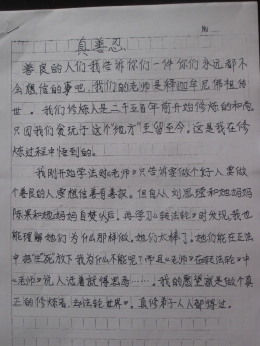 No
真善忍
善良的人们我告诉你们一件你们永远都不
会想信的事吧。我们的老师是释迦牟尼佛祖传
世。我们修炼人是二千五百年前开始修炼的和尚
只因我们贪玩于这个“地方”至留至今。这是我在修
炼过程中悟到的。
我刚开始学法时《老师》只告诉家做个好人要做
个善良的人要想信善有善报。但自从刘思瑩和她妈妈
陈果和她妈妈自焚以后，再学习《转法轮》时发现我也
能理解她们为什么那样做。她们太棒了。她们能在正法
中把“生”死放下我为什么不能呢？而且《老师》在《转法轮》中
《老师》说人活着就得遭……。我的愿望就是做个真
正的修炼者，却“法轮世界”。真修弟子人人都得过。